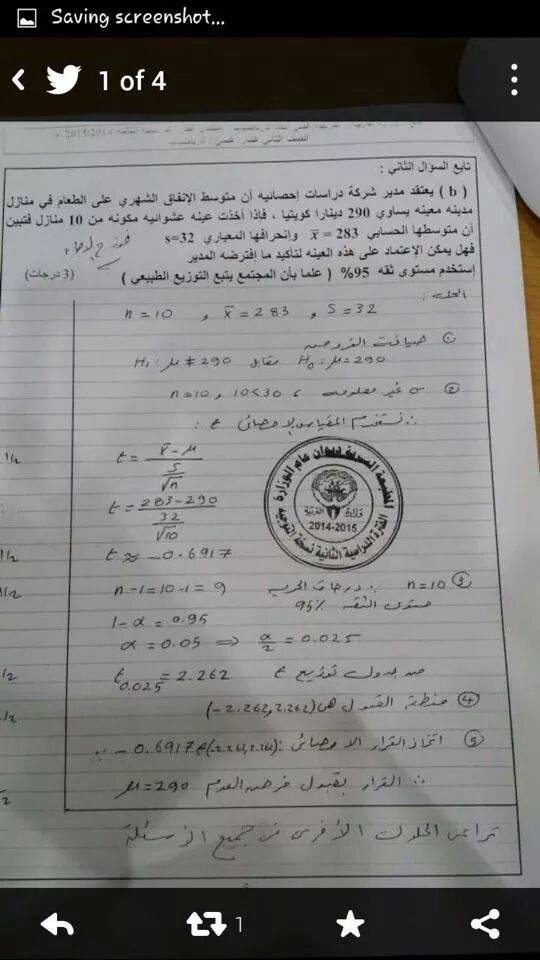 Saving screenshot...
1 of 4
تابع السؤال الثاني :
( b ) يعتقد مدير شركة دراسات إحصائيه أن متوسط الإنفاق الشهري على الطعام في منازل
مدينه معينه يساوي 290 دينارا كويتيا ، فإذا أخذت عينه عشوائيه مكونه من 10 منازل فتبين
أن متوسطها الحسابي x̄ = 283 وإنحرافها المعياري s=32
فهل يمكن الإعتماد على هذه العينه لتأكيد ما إفترضه المدير
إستخدم مستوى ثقه 95% ( علما بأن المجتمع يتبع التوزيع الطبيعي )
(3 درجات)
الحل :
n = 10 , x̄ = 283 , S = 32
① صياغة الفروض
H₀: μ = 290 مقابل H₁: μ ≠ 290
② σ غير معلومه ، n = 10 , 10 < 30
∴ نستخدم المقياس الإحصائي t :
t = (x̄ - μ) / (S / √n)
1/2
t = (283 - 290) / (32 / √10)
t ≈ -0.6917
1/2
المطبعة السرية ديوان عام الوزارة
وزارة التربية
2014-2015
الفترة الدراسية الثانية نسخة التوجيه
③ n = 10 ∴ درجات الحرية n - 1 = 10 - 1 = 9
1/2
مستوى الثقه 95%
1 - α = 0.95
α = 0.05 ⇒ α/2 = 0.025
من جدول توزيع t
t0.025 = 2.262
1/2
④ منطقة القبول هي (-2.262, 2.262)
1/2
⑤ اتخاذ القرار الاحصائي : ∵ -0.6917 ∈ (-2.262, 2.262)
∴ القرار بقبول فرض العدم μ = 290
تراعى الحلول الأخرى في جميع الأسئلة
1